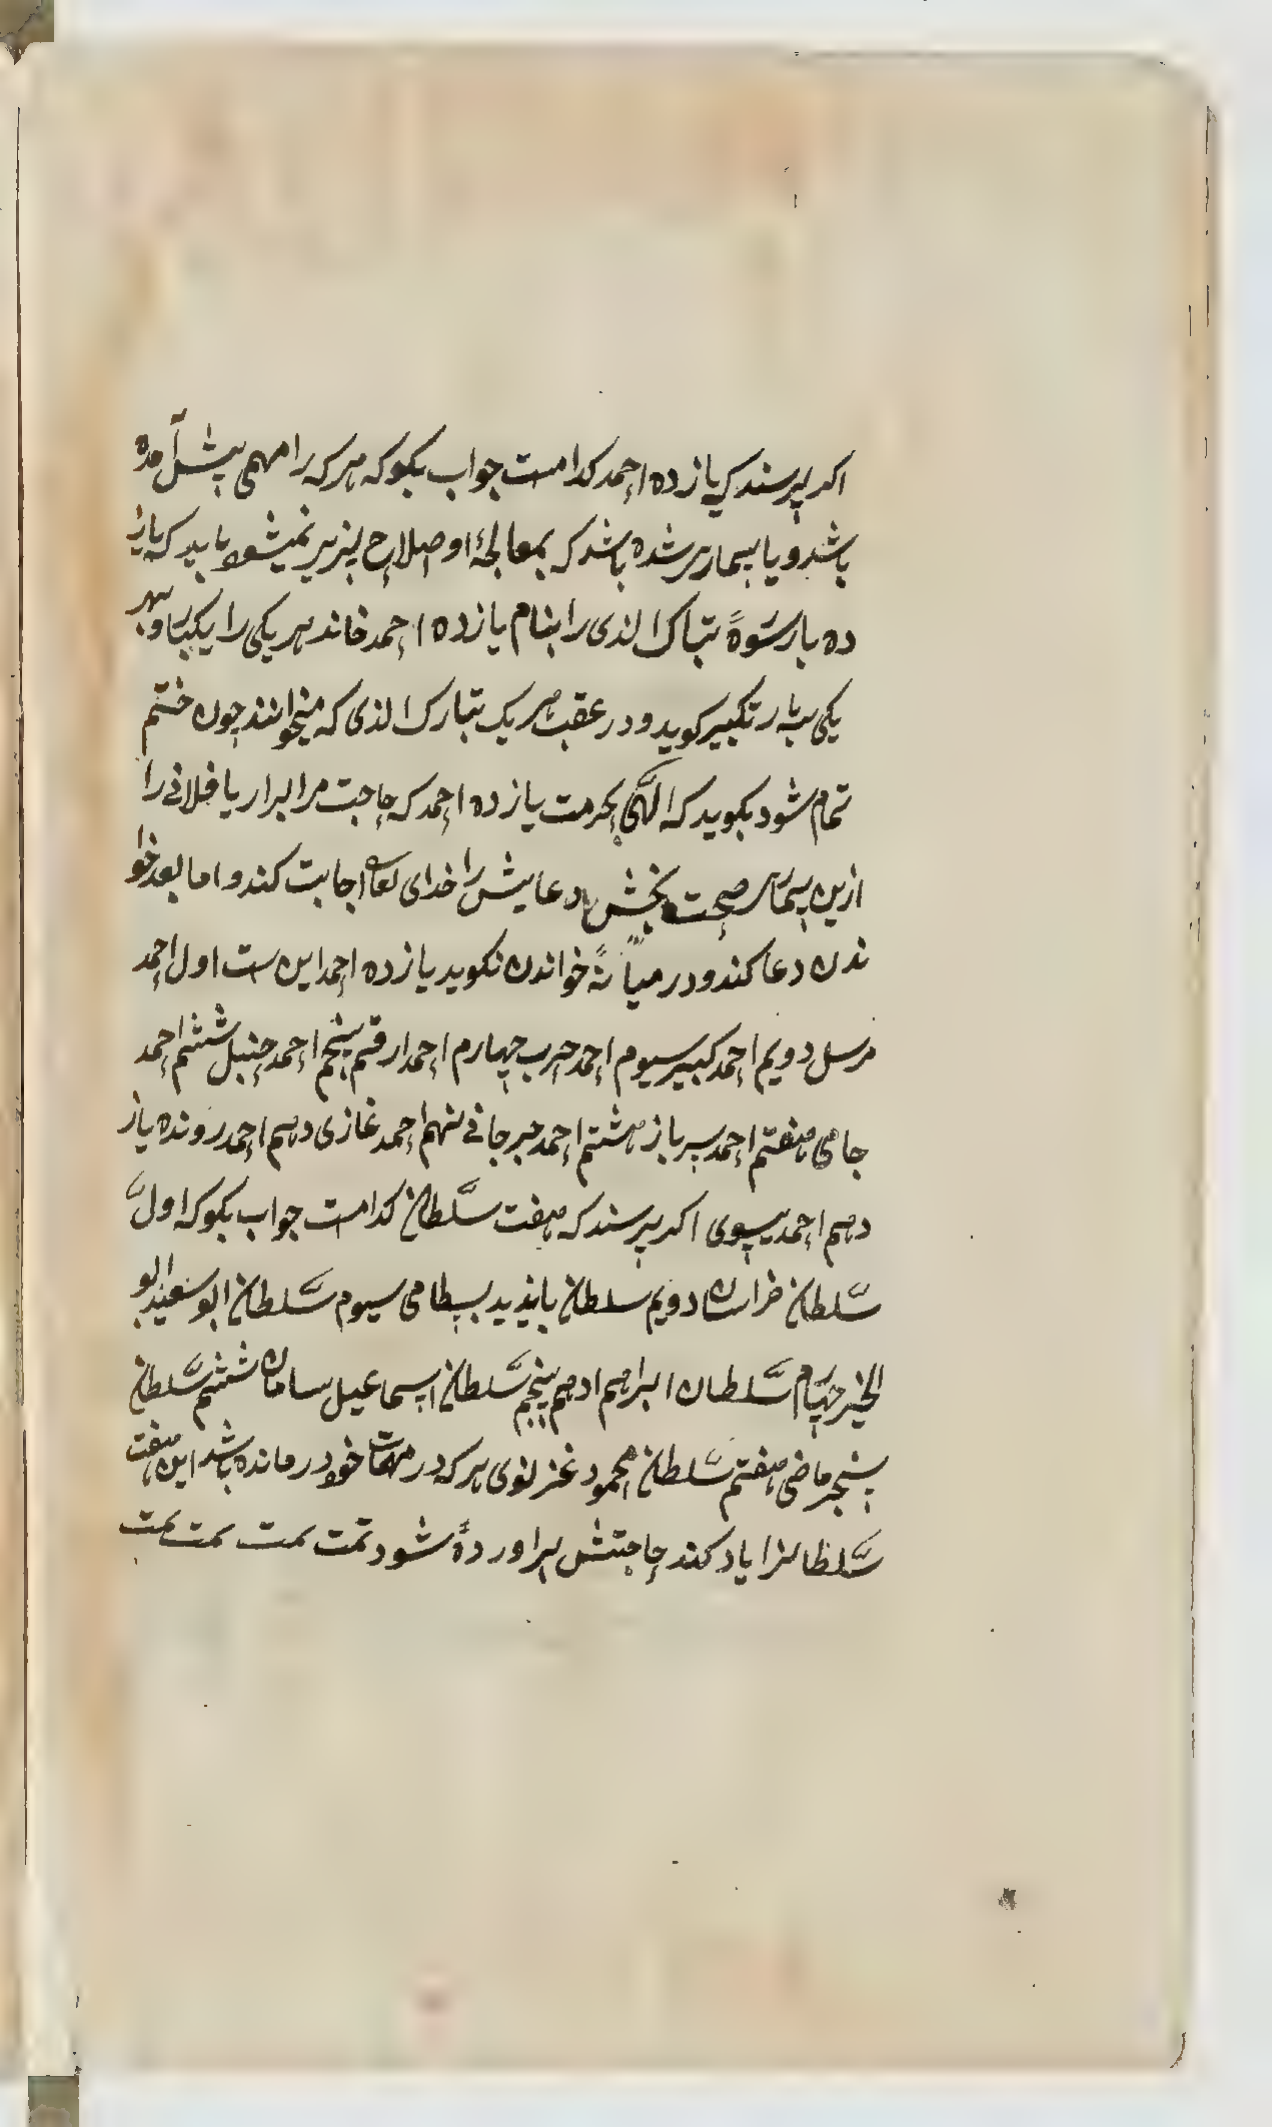 اکر پرسند که یازده احمد کدامست جواب بکو که هرکه را مهمی پیش آمده
باشد و یا بیمارر شده باشد که بمعالجۀ او صلاح پزیر نمیشود باید که یاز
ده بار سورۀ تبارک الذی را بنام یازده احمد خاند هر یکی را یکبار و بهر
یکی سه بار تکبیر کوید و در عقب هر یک تبارک الذی که میخوانند چون ختم
تمام شود بکوید که الهی بحرمت یازده احمد که حاجت مرا برار یا فلانی را
ازین بیمار صحت بخش دعایش را خدای تعا اجابت کند و اما بعد خوا
ندن دعا کند و در میانۀ خواندن نکوید یازده احمد این ست اول احمد
مرسل دویم احمد کبیر سیوم احمد حرب چهارم احمد ارقم پنجم احمد حنبل ششم احمد
جامی هفتم احمد سرباز هشتم احمد جرجانی نهم احمد غازی دهم احمد رونده یاز
دهم احمد یسوی اکر پرسند که هفت سلطان کدامست جواب بکو که اول
سلطان خراسان دویم سلطان بایذید بسطامی سیوم سلطان ابو سعید ابو
الخیر چهارم سلطان ابراهیم ادهم پنجم سلطان اسماعیل سامان ششم سلطان
سنجر ماضی هفتم سلطان محمود غزنوی هرکه در مهمات خود درمانده باشد این هفت
سلطانرا یاد کند حاجتش براورده شود تمت تمت تمت تمت